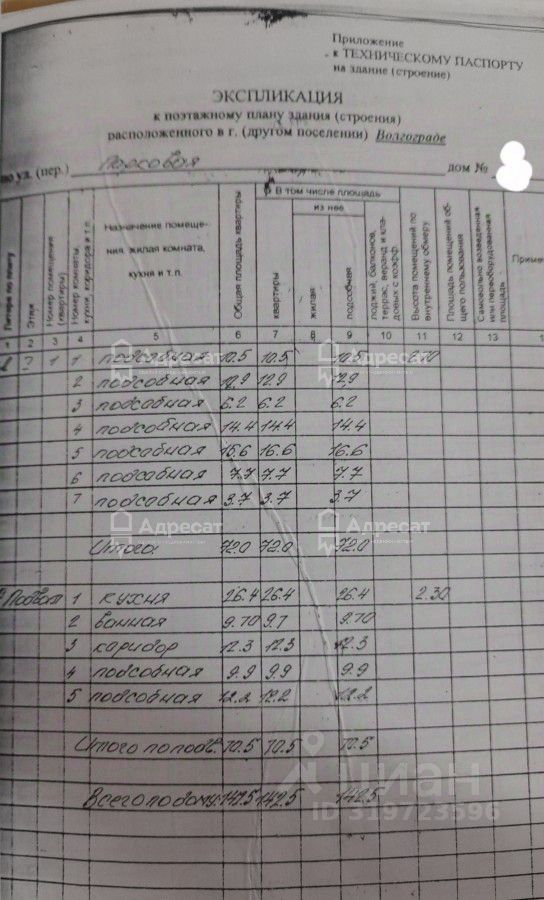 Приложение
к ТЕХНИЧЕСКОМУ ПАСПОРТУ
на здание (строение)
ЭКСПЛИКАЦИЯ
к поэтажному плану здания (строения)
расположенного в г. (другом поселении) Волгограде
по ул. (пер.) дом №
Литера по плану
Этаж
Номер помещения (квартиры)
Номер комнаты, кухни, коридора и т.п.
Назначение помеще-
ния жилая комната,
кухня и т.п.
Общая площадь квартиры
В том числе площадь
квартиры
из нее
жилая
подсобная
лоджий, балконов, террас, веранд и кладовых с коэфф.
Высота помещений по внутреннему обмеру
Площадь помещений общего пользования
Самовольно возведенная или переоборудованная площадь
Приме
1 2 3 4 5 6 7 8 9 10 11 12 13
1 1 подсобная 10.5 10.5 10.5
2 подсобная 12.9 12.9 12.9
3 подсобная 6.2 6.2 6.2
4 подсобная 14.4 14.4 14.4
5 подсобная 16.6 16.6 16.6
6 подсобная 7.7 7.7 7.7
7 подсобная 3.7 3.7 3.7
Итого 72.0 72.0 72.0
Подвал 1 кухня 26.4 26.4 26.4 2.30
2 ванная 9.70 9.7 9.70
3 каридор 12.3 12.3 12.3
4 подсобная 9.9 9.9 9.9
5 подсобная 12.2 12.2 12.2
Итого по подв. 70.5 70.5 70.5
Всего по дому: 142.5 142.5 142.5
Адресат
Адресат
Адресат
Адресат
циан
ID 319723596